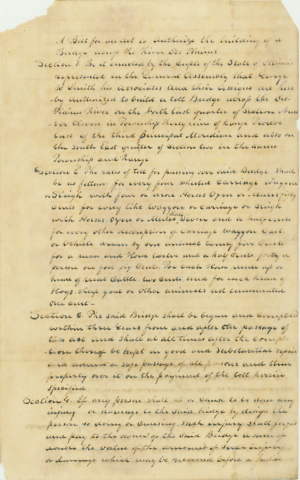 A Bill for an act to Authorize the building of a
Bridge across the River Des Plaines
Section 1 Be it enacted by the People of the State of Illinois
represented in the General Assembly that George
W Smith his Associates and their assigns are here
by Authorized to build a toll Bridge across the Des
Plaines River on the North East quarter of Section
in Township thirty nine of Range twelve
East of the third Principal Meridian and also on
the south East quarter of Section two in the same
Township and Range
Section 2 The rates of toll for passing over said Bridge shall
be as follows for every four wheeled Carriage Waggon
or Sleigh with four or more Horses Oxen or Mules fifty
Cents for every like Waggon or Carriage or Sleigh
with Horses Oxen or Mules
for every other description of Carriage Waggon Cart
or Vehicle drawn by one animal twenty five Cents
for a man and Horse twelve and a half Cents for a
person on foot six Cents For each Horse
head of Cattle two Cents and for each head of
Hogs sheep goat or other animals not enumerated
one cent
Section 3 The said Bridge shall be begun and Completed
within three Years from and after the passage of
this act and shall at all times after the
thereof be kept in good and Substantial repair
safe passage of all persons and their
property over it on the payment of the toll herein
specified
Section 4 If any person shall do or Cause to be done any
injury or damage to the said bridge by design the
person so doing or causing such injury shall forfeit
and pay to the owner of the said Bridge a sum of
the value of the amount of such injury
or damage which may be recovered before a Justice